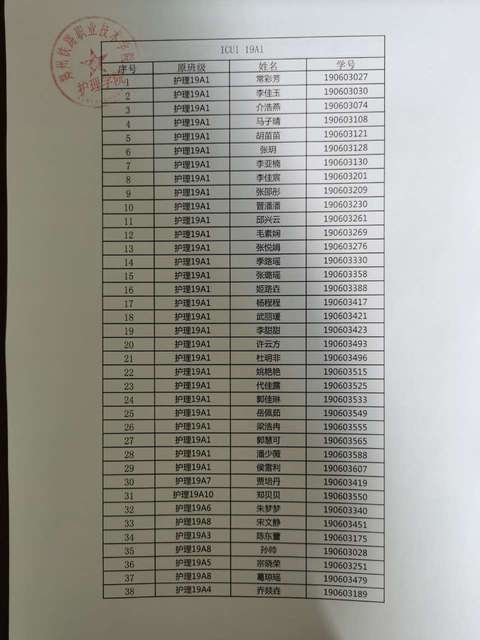 ICU1 19A1
序号 原班级 姓名 学号
1 护理19A1 常彩芳 190603027
2 护理19A1 李佳玉 190603030
3 护理19A1 介浩燕 190603074
4 护理19A1 马子晴 190603108
5 护理19A1 胡苗苗 190603121
6 护理19A1 张玥 190603128
7 护理19A1 李亚楠 190603130
8 护理19A1 李佳宸 190603201
9 护理19A1 张邵彤 190603209
10 护理19A1 晋潘潘 190603230
11 护理19A1 邱兴云 190603261
12 护理19A1 毛素娴 190603269
13 护理19A1 张悦娟 190603276
14 护理19A1 季路瑶 190603330
15 护理19A1 张璐瑶 190603358
16 护理19A1 姬路垚 190603388
17 护理19A1 杨程程 190603417
18 护理19A1 武丽瑗 190603421
19 护理19A1 李甜甜 190603423
20 护理19A1 许云方 190603493
21 护理19A1 杜明非 190603496
22 护理19A1 姚艳艳 190603515
23 护理19A1 代佳露 190603525
24 护理19A1 郭佳琳 190603533
25 护理19A1 岳佩茹 190603549
26 护理19A1 梁浩冉 190603555
27 护理19A1 郭慧可 190603565
28 护理19A1 潘少薇 190603588
29 护理19A1 侯雪利 190603607
30 护理19A7 贾培丹 190603419
31 护理19A10 郑贝贝 190603550
32 护理19A6 朱梦梦 190603340
33 护理19A8 宋文静 190603451
34 护理19A3 陈东 190603175
35 护理19A8 孙帅 190603028
36 护理19A5 宗晓荣 190603251
37 护理19A8 葛琼瑶 190603479
38 护理19A4 乔燚垚 190603189
护理学院